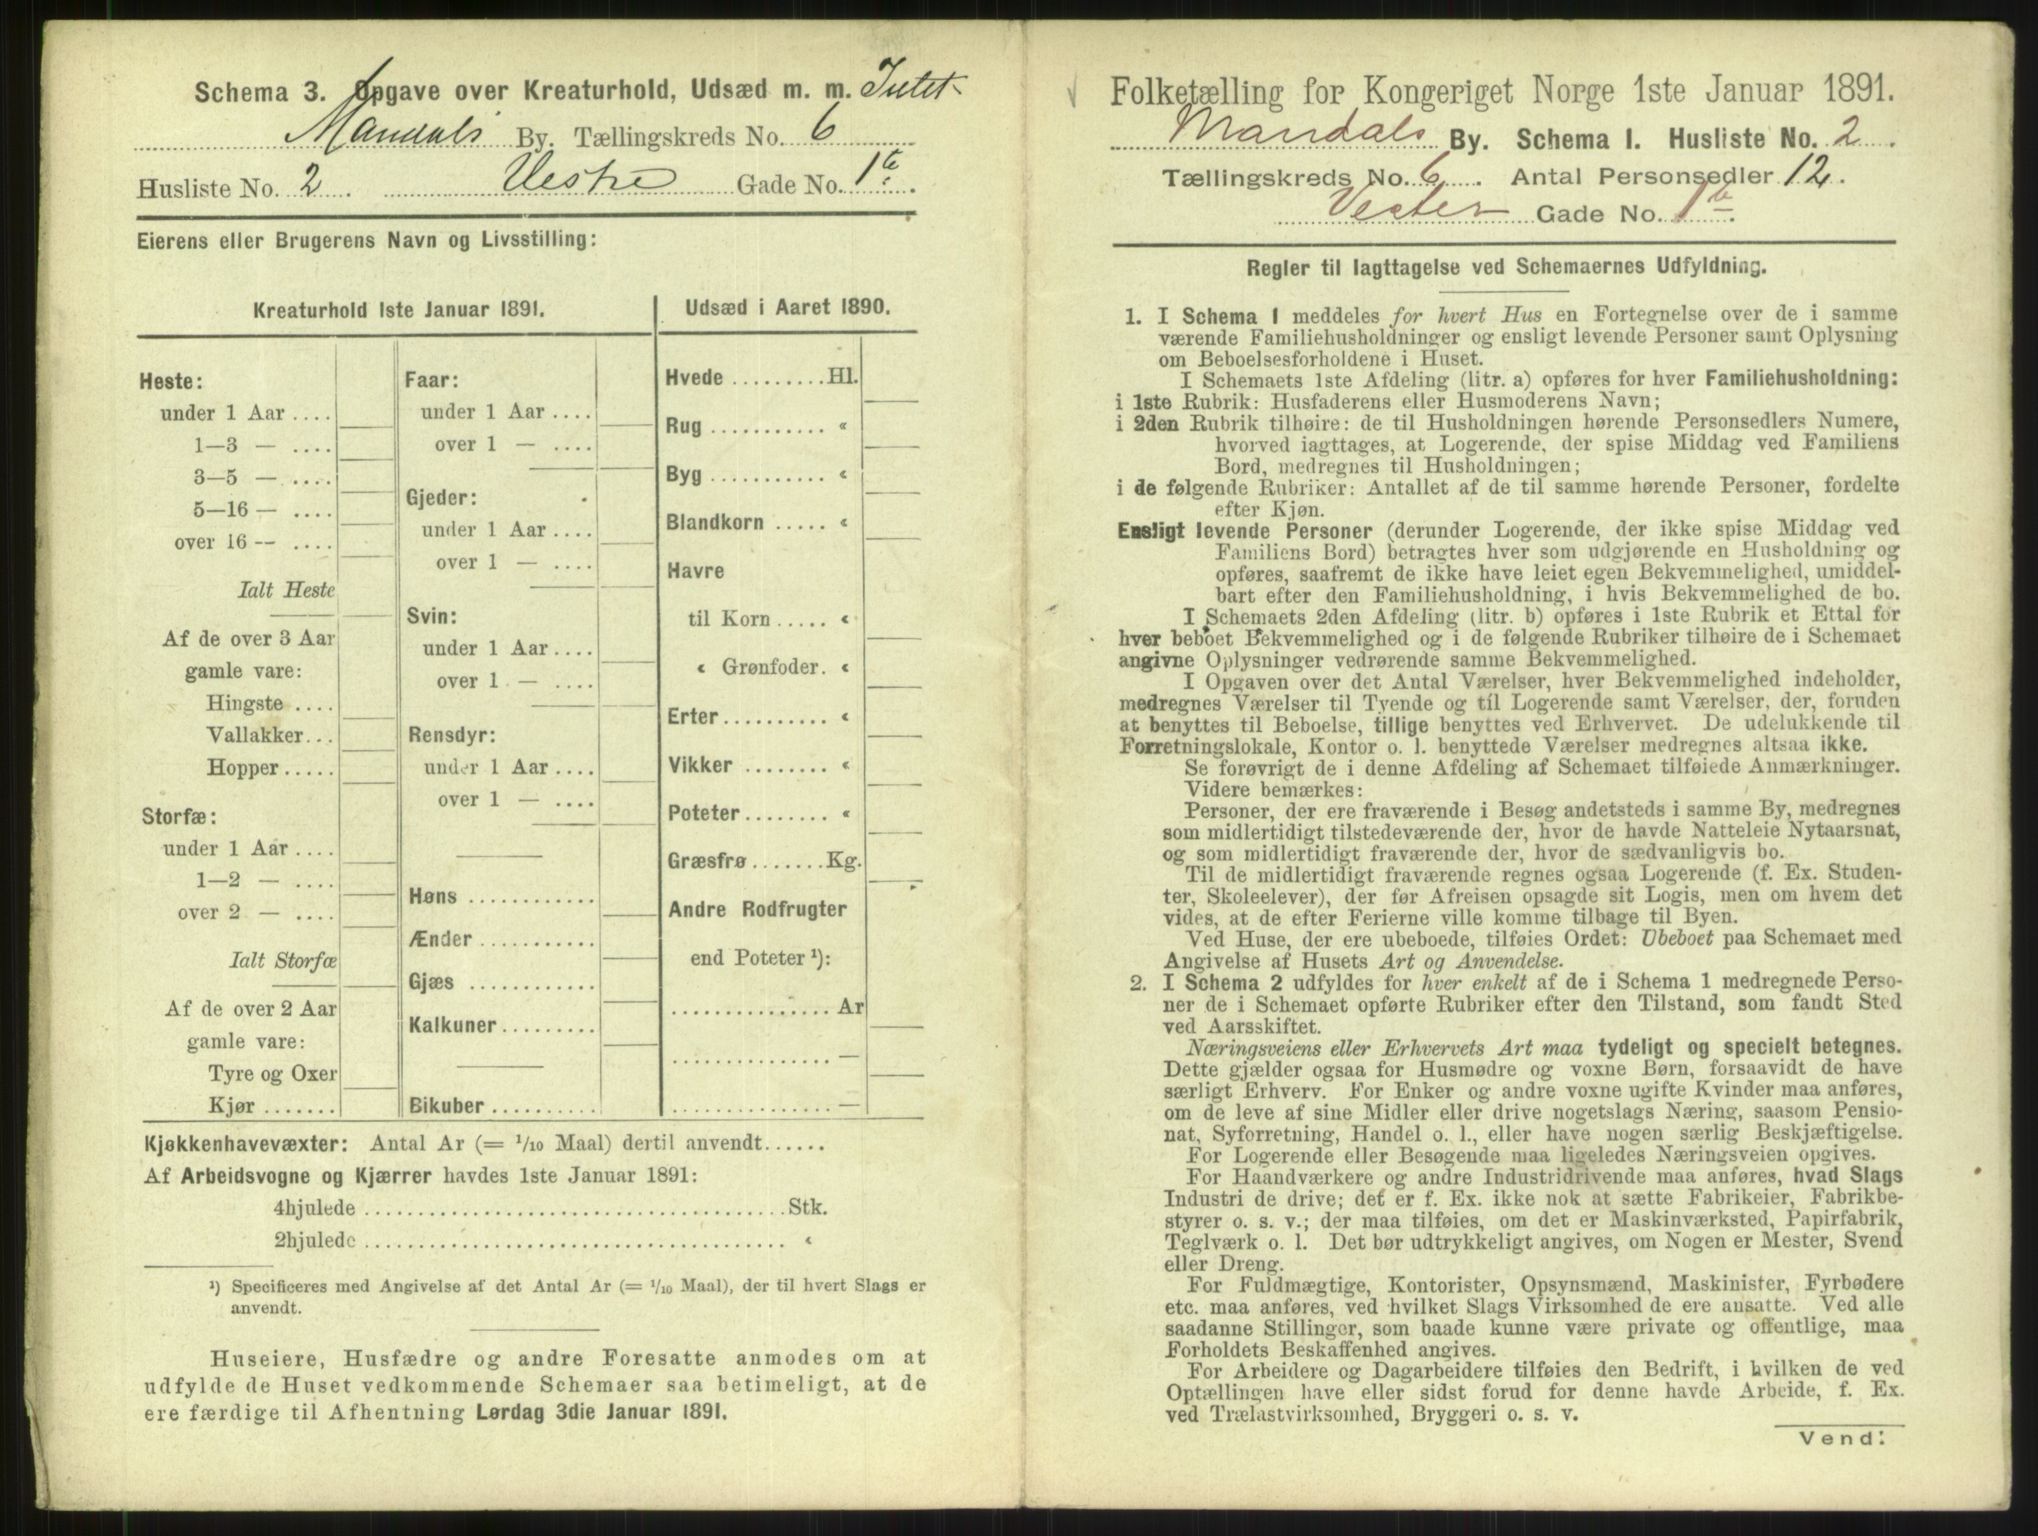 Schema 3. Opgave over Kreaturhold, Udsæd m. m. Intet
Mandals By. Tællingskreds No. 6
Husliste No. 2 Vestre Gade No. 1
Eierens eller Brugerens Navn og Livsstilling:
Kreaturhold 1ste Januar 1891.
Heste:
under 1 Aar ....
1—3 — ....
3—5 — ....
5—16 — ....
over 16 — ....
Ialt Heste
Af de over 3 Aar
gamle vare:
Hingste ....
Vallakker...
Hopper.....
Storfæ:
under 1 Aar ....
1—2 — ....
over 2 — ....
Ialt Storfæ
Af de over 2 Aar
gamle vare:
Tyre og Oxer
Kjør .......
Faar:
under 1 Aar ....
over 1 — ....
Gjeder:
under 1 Aar ....
over 1 — ....
Svin:
under 1 Aar ....
over 1 — ....
Rensdyr:
under 1 Aar ....
over 1 — ....
Høns ............
Ænder ...........
Gjæs ............
Kalkuner .........
Bikuber ..........
Udsæd i Aaret 1890.
Hvede .........Hl.
Rug ........... «
Byg ........... «
Blandkorn ..... «
Havre
til Korn ..... «
« Grønfoder. «
Erter.......... «
Vikker ........ «
Poteter ........ «
Græsfrø .......Kg.
Andre Rodfrugter
end Poteter ¹):
............... Ar
............... —
............... —
Kjøkkenhavevæxter: Antal Ar (= 1/10 Maal) dertil anvendt......
Af Arbeidsvogne og Kjærrer havdes 1ste Januar 1891:
4hjulede ....................................... Stk.
2hjulede ....................................... «
¹) Specificeres med Angivelse af det Antal Ar (= 1/10 Maal), der til hvert Slags er
anvendt.
Huseiere, Husfædre og andre Foresatte anmodes om at
udfylde de Huset vedkommende Schemaer saa betimeligt, at de
ere færdige til Afhentning Lørdag 3die Januar 1891.
Folketælling for Kongeriget Norge 1ste Januar 1891.
Mandals By. Schema I. Husliste No. 2.
Tællingskreds No. 6. Antal Personsedler 12.
Vester Gade No. 1
Regler til Iagttagelse ved Schemaernes Udfyldning.
1. I Schema 1 meddeles for hvert Hus en Fortegnelse over de i samme
værende Familiehusholdninger og ensligt levende Personer samt Oplysning
om Beboelsesforholdene i Huset.
I Schemaets 1ste Afdeling (litr. a) opføres for hver Familiehusholdning:
i 1ste Rubrik: Husfaderens eller Husmoderens Navn;
i 2den Rubrik tilhøire: de til Husholdningen hørende Personsedlers Numere,
hvorved iagttages, at Logerende, der spise Middag ved Familiens
Bord, medregnes til Husholdningen;
i de følgende Rubriker: Antallet af de til samme hørende Personer, fordelte
efter Kjøn.
Ensligt levende Personer (derunder Logerende, der ikke spise Middag ved
Familiens Bord) betragtes hver som udgjørende en Husholdning og
opføres, saafremt de ikke have leiet egen Bekvemmelighed, umiddel-
bart efter den Familiehusholdning, i hvis Bekvemmelighed de bo.
I Schemaets 2den Afdeling (litr. b) opføres i 1ste Rubrik et Ettal for
hver beboet Bekvemmelighed og i de følgende Rubriker tilhøire de i Schemaet
angivne Oplysninger vedrørende samme Bekvemmelighed.
I Opgaven over det Antal Værelser, hver Bekvemmelighed indeholder,
medregnes Værelser til Tyende og til Logerende samt Værelser, der, foruden
at benyttes til Beboelse, tillige benyttes ved Erhvervet. De udelukkende til
Forretningslokale, Kontor o. l. benyttede Værelser medregnes altsaa ikke.
Se forøvrigt de i denne Afdeling af Schemaet tilføiede Anmærkninger.
Videre bemærkes:
Personer, der ere fraværende i Besøg andetsteds i samme By, medregnes
som midlertidigt tilstedeværende der, hvor de havde Natteleie Nytaarsnat,
og som midlertidigt fraværende der, hvor de sædvanligvis bo.
Til de midlertidigt fraværende regnes ogsaa Logerende (f. Ex. Studen-
ter, Skoleelever), der før Afreisen opsagde sit Logis, men om hvem det
vides, at de efter Ferierne ville komme tilbage til Byen.
Ved Huse, der ere ubeboede, tilføies Ordet: Ubeboet paa Schemaet med
Angivelse af Husets Art og Anvendelse.
2. I Schema 2 udfyldes for hver enkelt af de i Schema 1 medregnede Perso-
ner de i Schemaet opførte Rubriker efter den Tilstand, som fandt Sted
ved Aarsskiftet.
Næringsveiens eller Erhvervets Art maa tydeligt og specielt betegnes.
Dette gjælder ogsaa for Husmødre og voxne Børn, forsaavidt de have
særligt Erhverv. For Enker og andre voxne ugifte Kvinder maa anføres,
om de leve af sine Midler eller drive nogetslags Næring, saasom Pensio-
nat, Syforretning, Handel o. l., eller have nogen særlig Beskjæftigelse.
For Logerende eller Besøgende maa ligeledes Næringsveien opgives.
For Haandværkere og andre Industridrivende maa anføres, hvad Slags
Industri de drive; det er f. Ex. ikke nok at sætte Fabrikeier, Fabrikbe-
styrer o. s. v.; der maa tilføies, om det er Maskinværksted, Papirfabrik,
Teglværk o. l. Det bør udtrykkeligt angives, om Nogen er Mester, Svend
eller Dreng.
For Fuldmægtige, Kontorister, Opsynsmænd, Maskinister, Fyrbødere
etc. maa anføres, ved hvilket Slags Virksomhed de ere ansatte. Ved alle
saadanne Stillinger, som baade kunne være private og offentlige, maa
Forholdets Beskaffenhed angives.
For Arbeidere og Dagarbeidere tilføies den Bedrift, i hvilken de ved
Optællingen have eller sidst forud for denne havde Arbeide, f. Ex.
ved Trælastvirksomhed, Bryggeri o. s. v.
Vend: